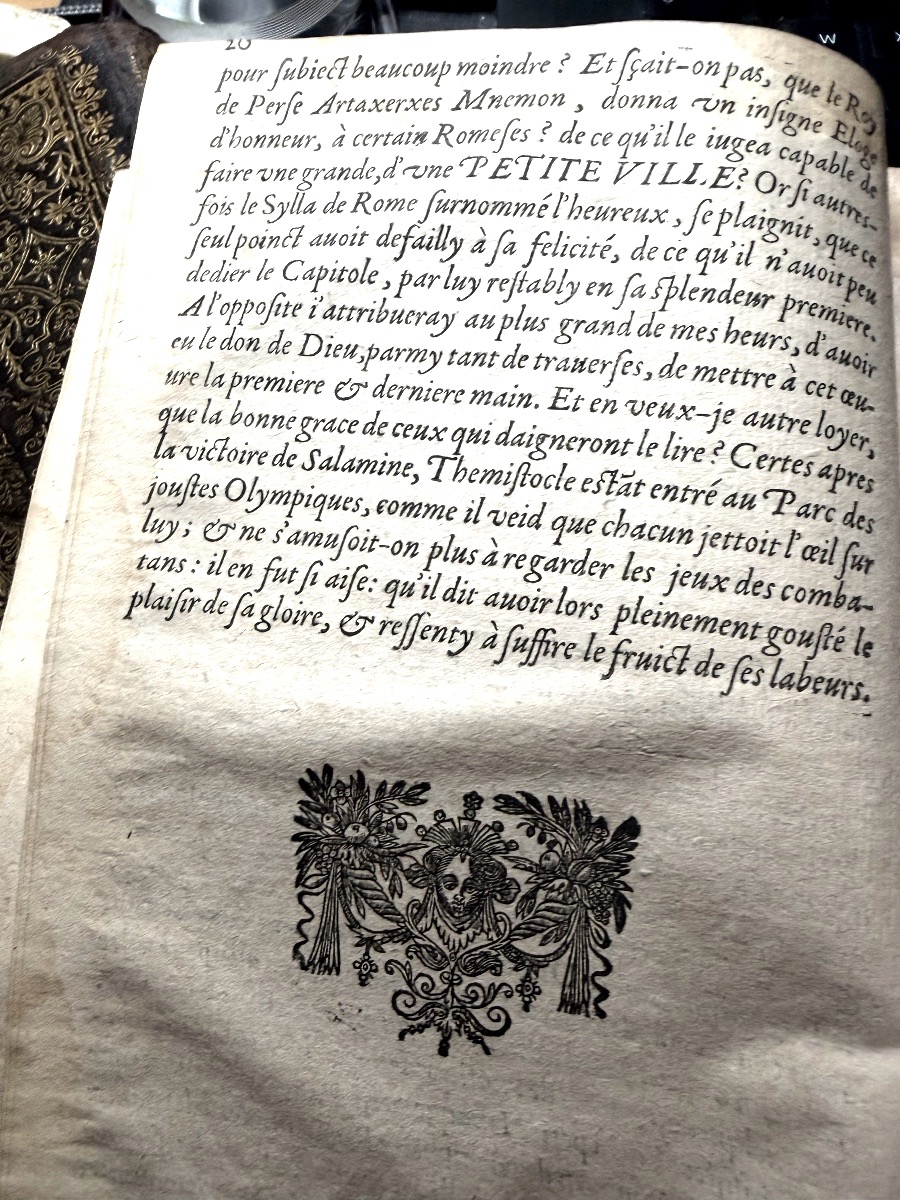 20
pour ſubiect beaucoup moindre ? Et ſçait-on pas, que le Roy
de Perſe Artaxerxes Mnemon , donna vn inſigne Eloge
d'honneur, à certain Romeſes ? de ce qu'il le iugea capable de
faire vne grande, d'vne PETITE VILLE? Or ſi autres-
fois le Sylla de Rome ſurnommé l'heureux , ſe plaignit, que ce
ſeul poinct auoit defailly à ſa felicité, de ce qu'il n'auoit peu
dedier le Capitole , par luy reſtably en ſa ſplendeur premiere.
A l'oppoſite i'attribueray au plus grand de mes heurs, d'auoir
eu le don de Dieu,parmy tant de trauerſes, de mettre à cet œu-
ure la premiere & derniere main. Et en veux-je autre loyer,
que la bonne grace de ceux qui daigneront le lire ? Certes apres
la victoire de Salamine, Themiſtocle eſtāt entré au Parc des
jouſtes Olympiques, comme il veid que chacun jettoit l'œil ſur
luy ; & ne s'amuſoit-on plus à regarder les jeux des comba-
tans : il en fut ſi aiſe: qu'il dit auoir lors pleinement gouſté le
plaiſir de ſa gloire, & reſſenty à ſuffire le fruict de ſes labeurs.
W